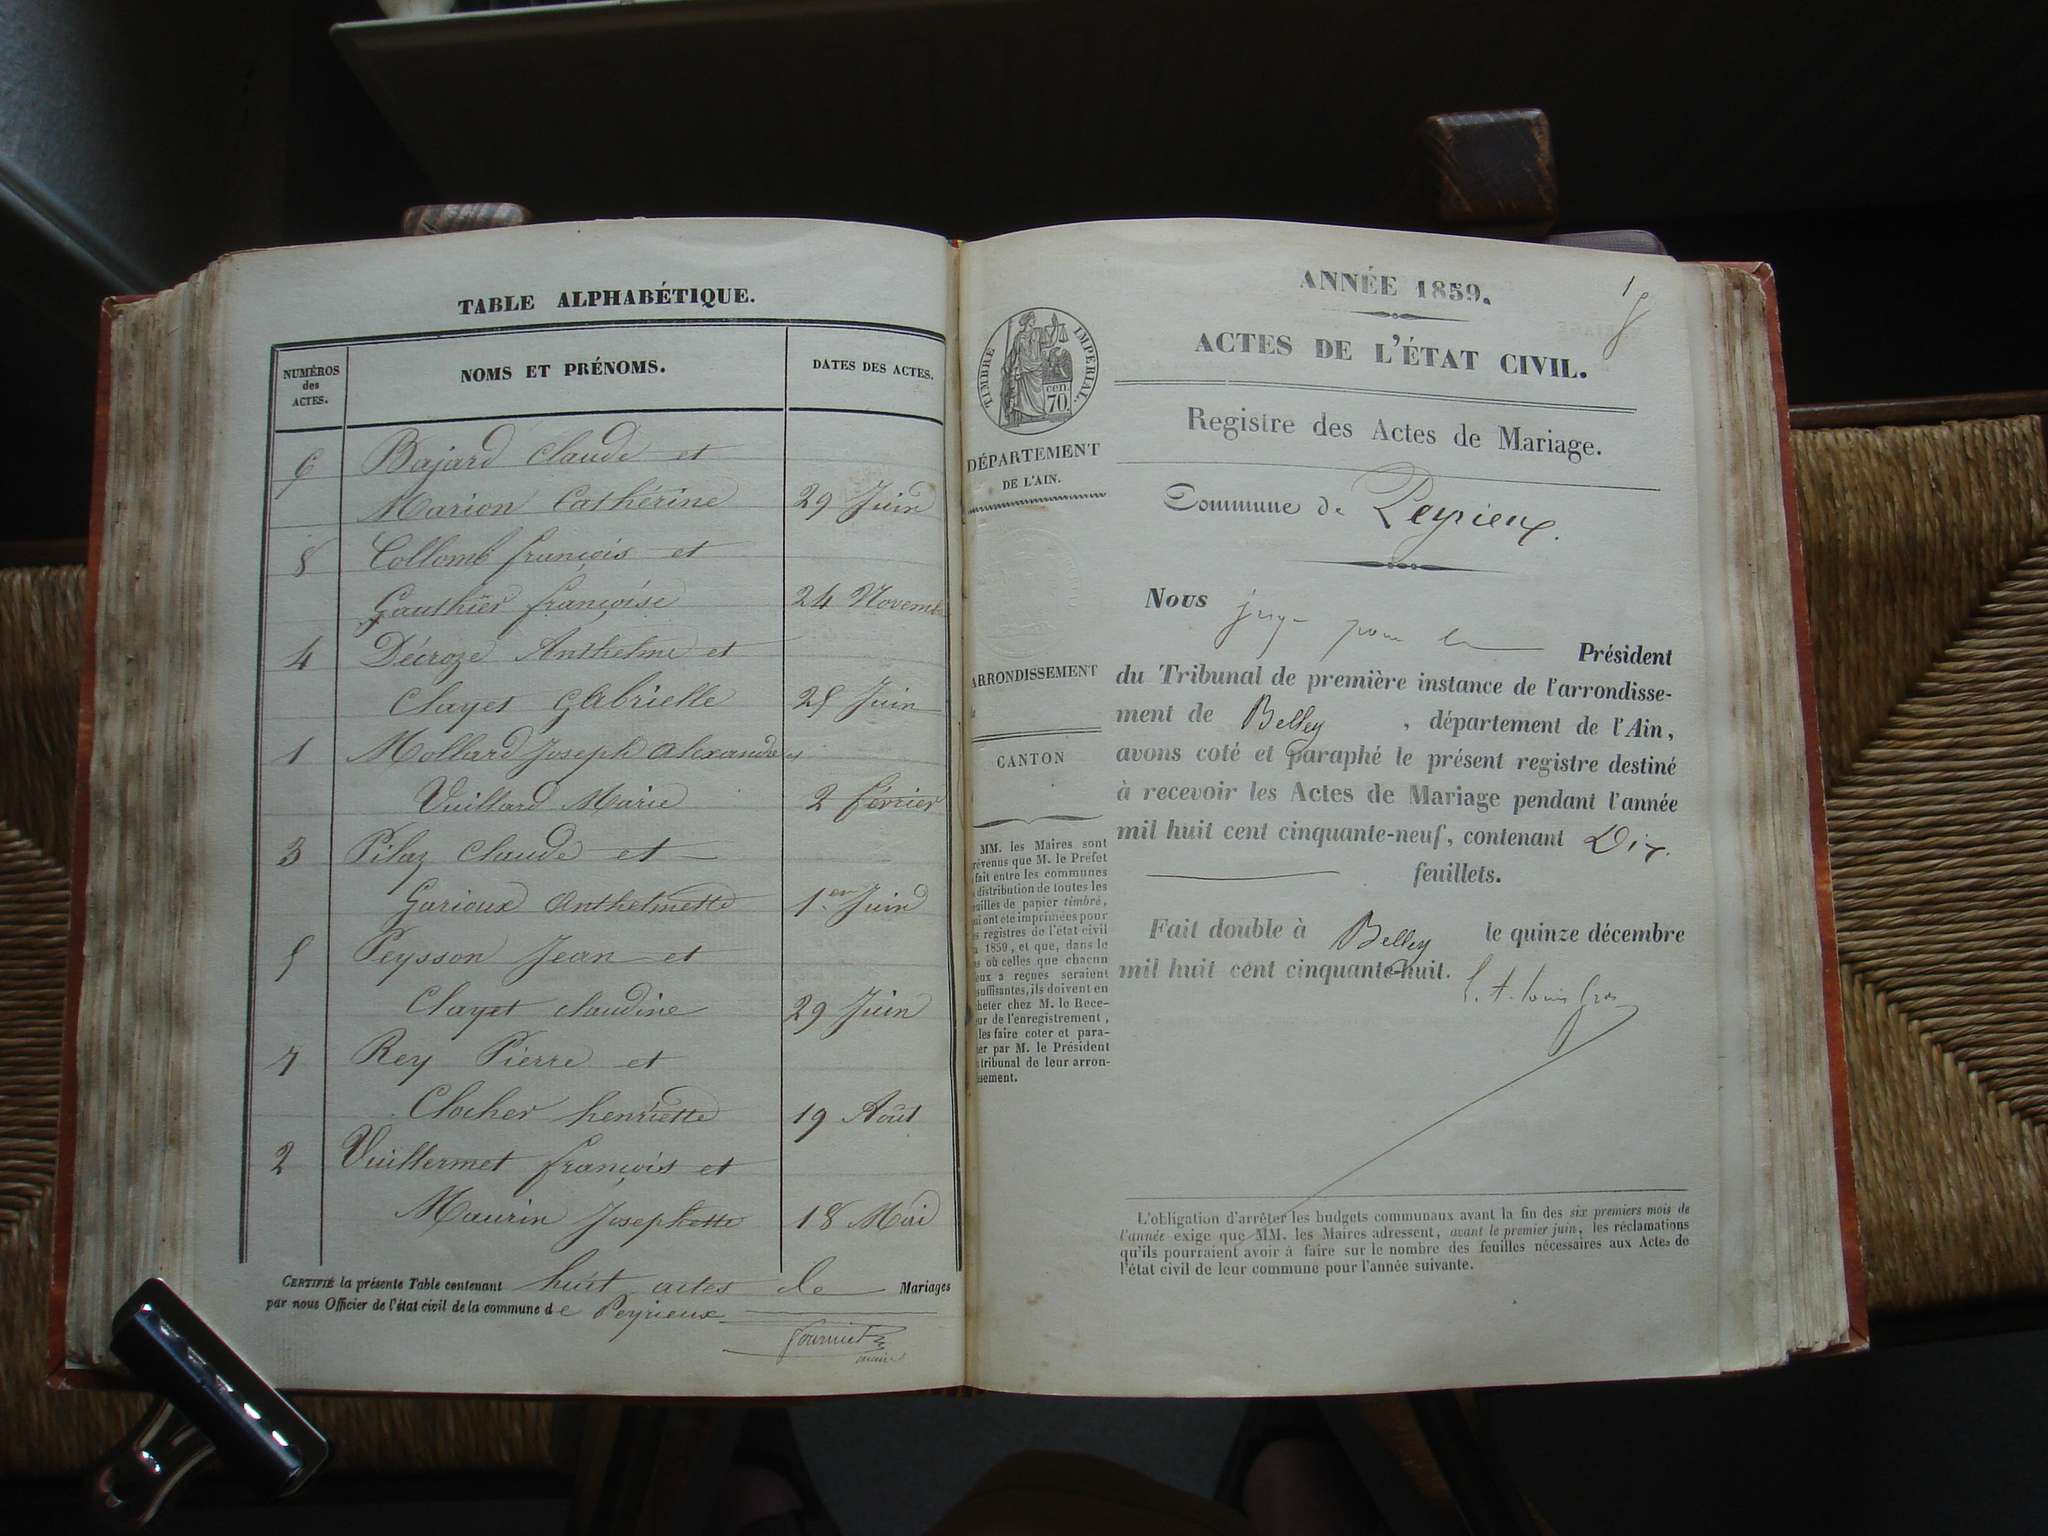 TABLE ALPHABÉTIQUE.
NUMÉROS
des
ACTES.
NOMS ET PRÉNOMS.
DATES DES ACTES.
6 Bajard Claude et
Marion Cathérine 29 Juin
8 Collomb françois et
Gauthier françoise 24 Novembre
4 Décroze Anthelme et
Clayet Gabrielle 25 Juin
1 Mollard Joseph Alexandre et
Vuillard Marie 2 février
3 Pilaz Claude et
Garioux Anthelmette 1er Juin
5 Peysson Jean et
Clayet Claudine 29 Juin
7 Rey Pierre et
Clocher henriette 19 Août
2 Vuillermet françois et
Maurin Josephette 18 Mai
CERTIFIÉ la présente Table contenant huit actes de Mariages
par nous Officier de l'état civil de la commune de Peyrieux
maire
1
ANNÉE 1859.
ACTES DE L'ÉTAT CIVIL.
Registre des Actes de Mariage.
Commune de Peyrieux.
TIMBRE IMPÉRIAL.
cen.
70.
DÉPARTEMENT
DE L'AIN.
ARRONDISSEMENT
CANTON
MM. les Maires sont
révenus que M. le Préfet
fait entre les communes
distribution de toutes les
uilles de papier timbré,
ui ont été imprimées pour
s registres de l'état civil
1859, et que, dans le
s où celles que chacun
eux a reçues seraient
suffisantes, ils doivent en
cheter chez M. le Rece-
ur de l'enregistrement,
les faire coter et para-
er par M. le Président
tribunal de leur arron-
ssement.
Nous juge pour le Président
du Tribunal de première instance de l'arrondisse-
ment de Belley, département de l'Ain,
avons coté et paraphé le présent registre destiné
à recevoir les Actes de Mariage pendant l'année
mil huit cent cinquante-neuf, contenant Dix
feuillets.
Fait double à Belley le quinze décembre
mil huit cent cinquante-huit.
L'obligation d'arrêter les budgets communaux avant la fin des six premiers mois de
l'année exige que MM. les Maires adressent, avant le premier juin, les réclamations
qu'ils pourraient avoir à faire sur le nombre des feuilles nécessaires aux Actes de
l'état civil de leur commune pour l'année suivante.